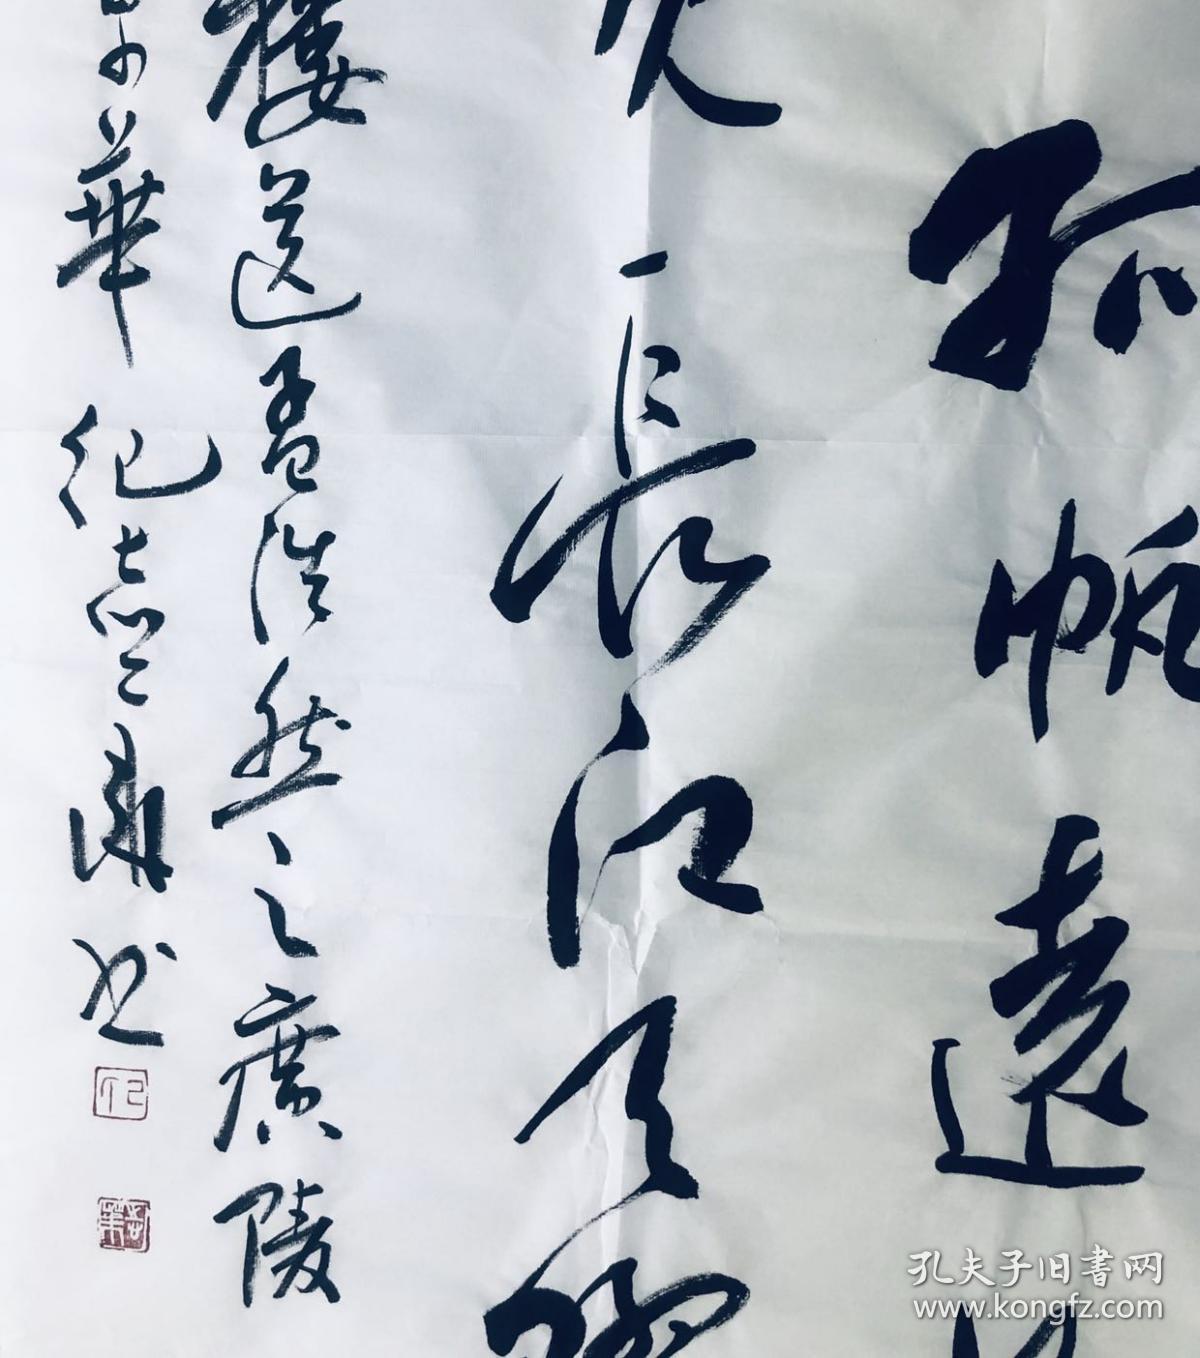 孤帆遠
見長江天際
樓送孟浩然之廣陵
京華 紀 書
孔夫子旧書网
www.kongfz.com